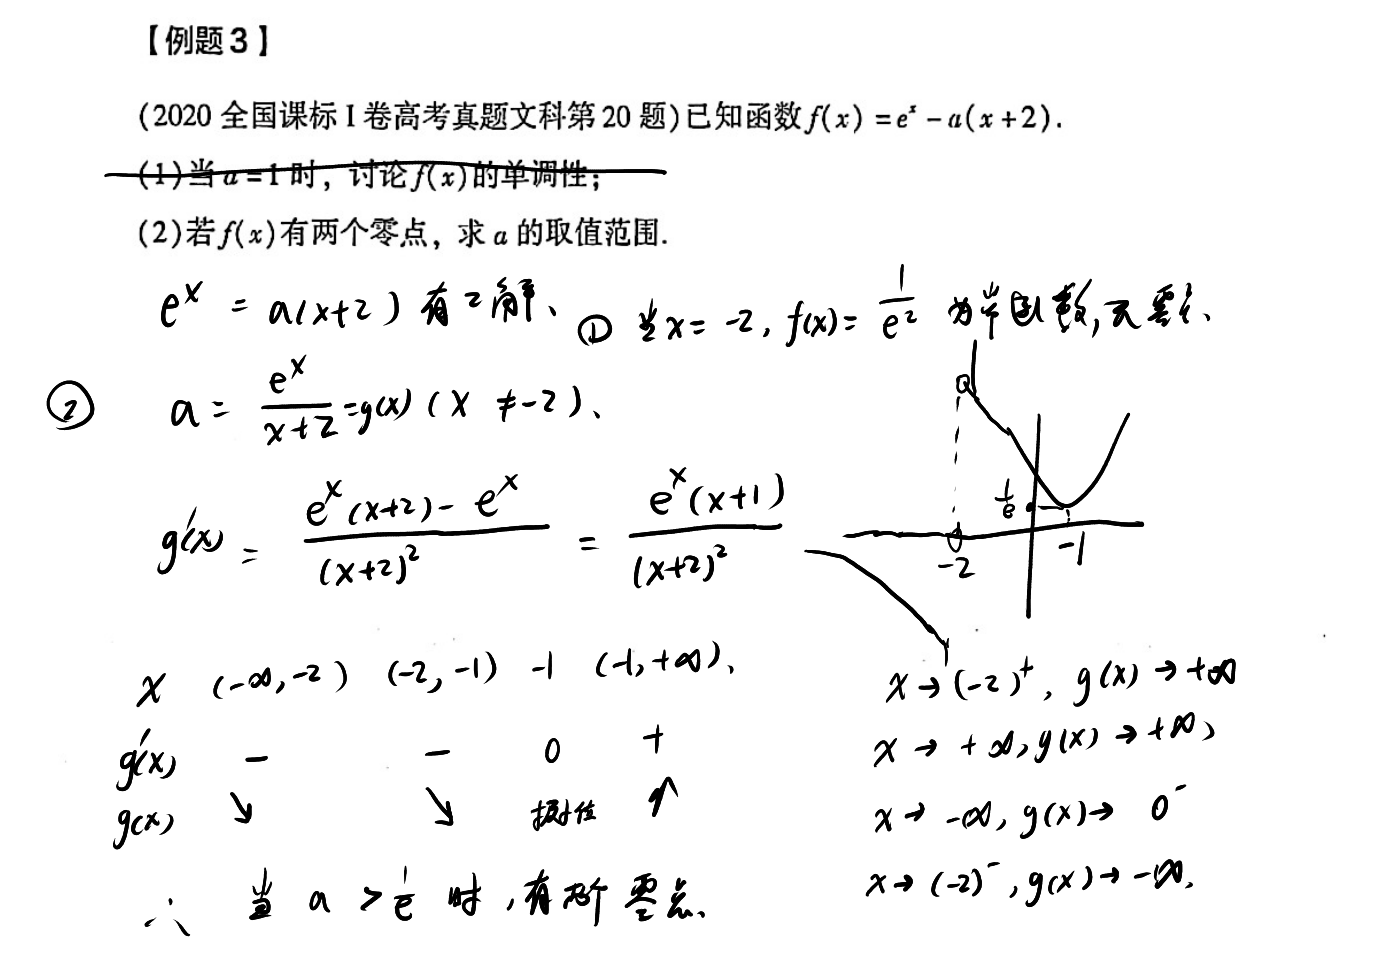 【例题3】
(2020 全国课标 I 卷高考真题文科第 20 题)已知函数 f(x) = eˣ - a(x+2).
(1)当 a = 1 时，讨论 f(x) 的单调性；
(2)若 f(x) 有两个零点，求 a 的取值范围.
eˣ = a(x+2) 有2解、
① 当x = -2, f(x) = 1/e² 为常函数,无零点、
② a = eˣ/(x+2) = g(x) (x ≠ -2)、
g'(x) = (eˣ(x+2) - eˣ)/(x+2)² = eˣ(x+1)/(x+2)²
1/e
-2 -1
x (-∞,-2) (-2,-1) -1 (-1,+∞)、
g'(x) - - 0 +
g(x) ↘ ↘ 极小值 ↗
x → (-2)⁺, g(x) → +∞
x → +∞, g(x) → +∞,
x → -∞, g(x) → 0⁻
x → (-2)⁻, g(x) → -∞.
∴ 当 a > 1/e 时,有两个零点、